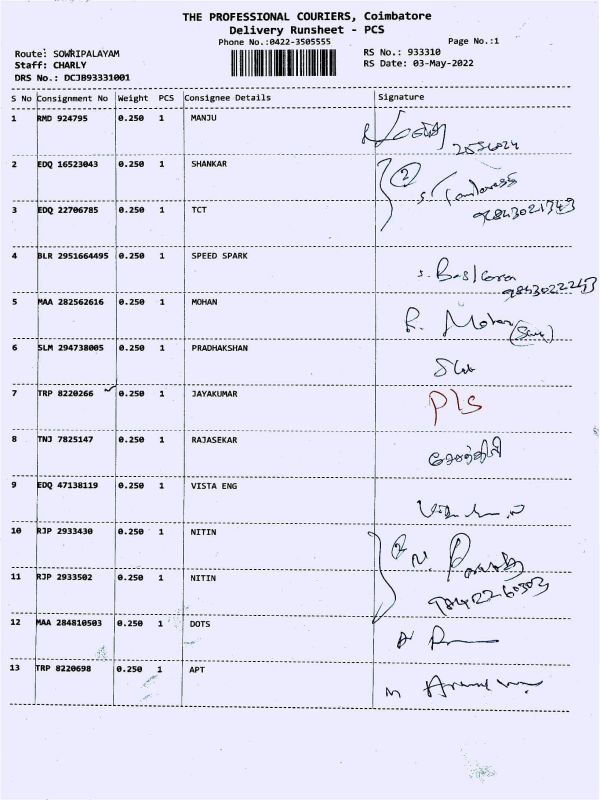 THE PROFESSIONAL COURIERS, Coimbatore
Delivery Runsheet - PCS
Phone No.:0422-3505555
Page No.:1
Route: SOWRIPALAYAM
RS No.: 933310
Staff: CHARLY
RS Date: 03-May-2022
DRS No.: DCJB93331001
S No Consignment No Weight PCS Consignee Details Signature
1 RMD 924795 0.250 1 MANJU
2 EDQ 16523043 0.250 1 SHANKAR 2
3 EDQ 22706785 0.250 1 TCT 9843021343
4 BLR 2951664495 0.250 1 SPEED SPARK
5 MAA 282562616 0.250 1 MOHAN R. Mohan
6 SLM 294738005 0.250 1 PRADHAKSHAN
7 TRP 8220266 0.250 1 JAYAKUMAR Pls
8 TNJ 7825147 0.250 1 RAJASEKAR
9 EDQ 47138119 0.250 1 VISTA ENG
10 RJP 2933430 0.250 1 NITIN
11 RJP 2933502 0.250 1 NITIN
12 MAA 284810503 0.250 1 DOTS
13 TRP 8220698 0.250 1 APT